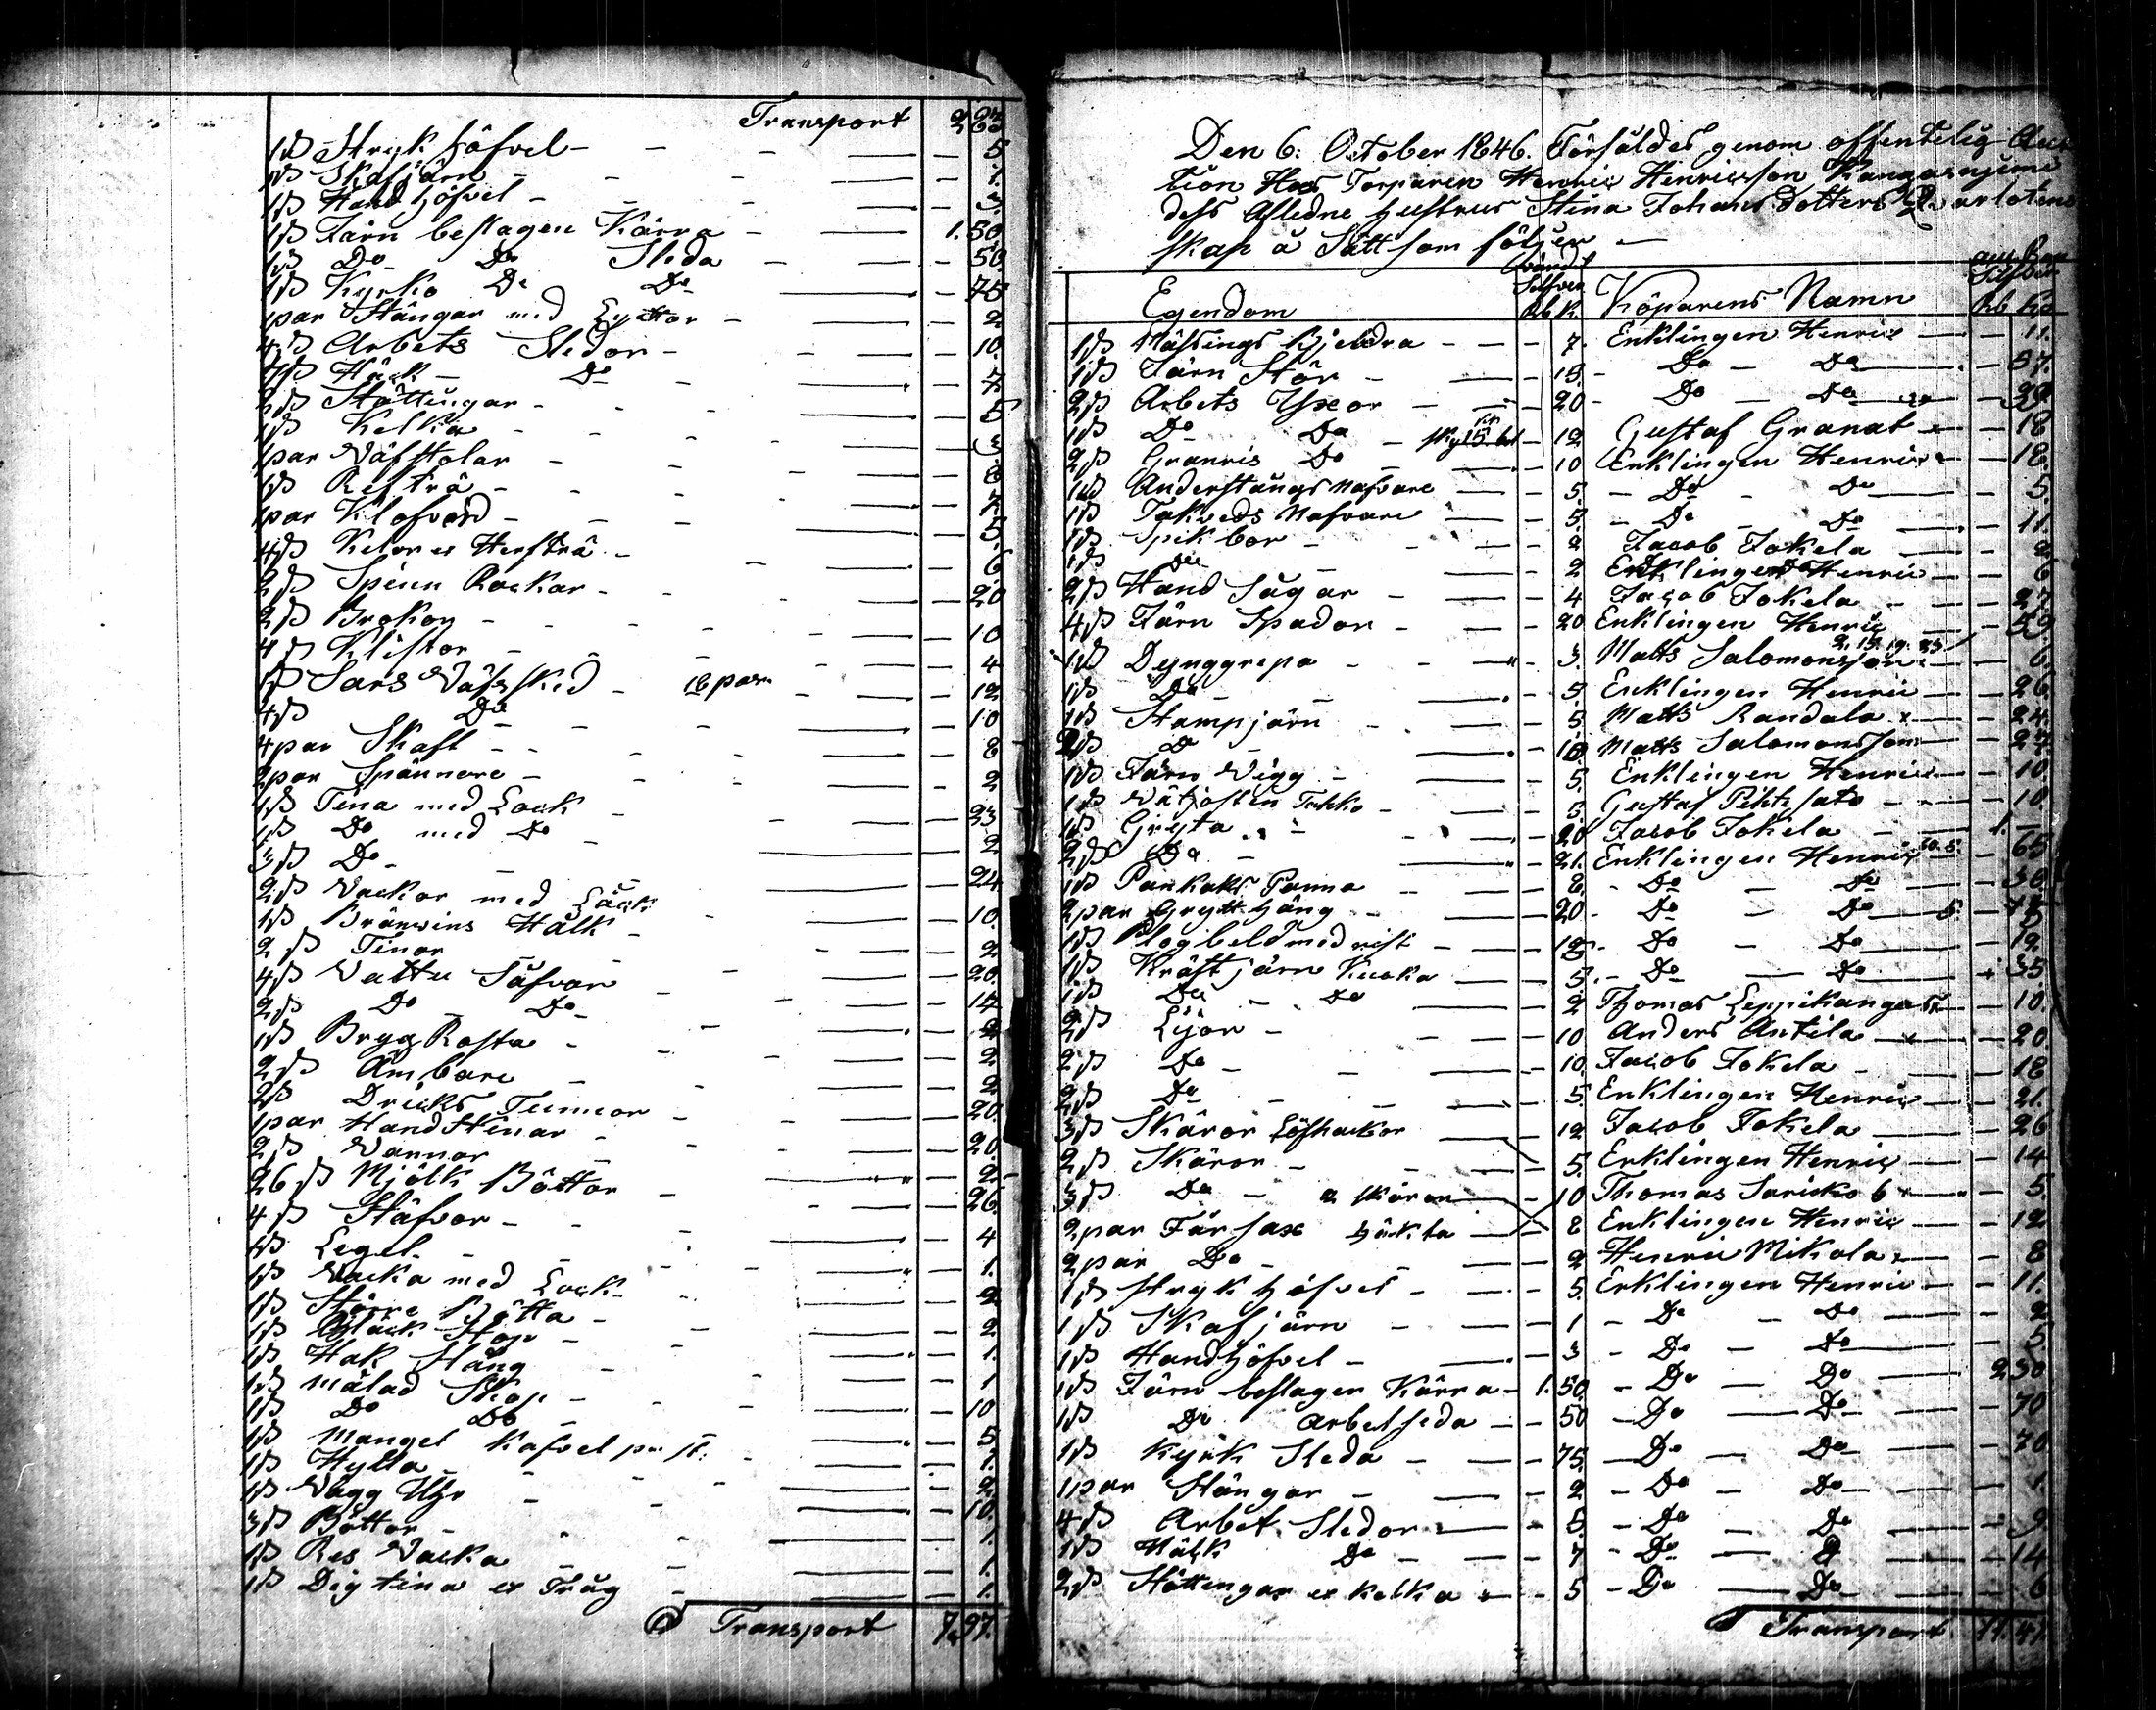 Transport 2 63
1 st Stryk höfvel - 5
1 st Skafjärn - 1.
1 st Hand höfvel - 3.
1 st Järn beslagen Kärra - 1.50
1 st Do Do Sleda - 50.
1 st Kyrko Do Do 75
1 par Stängar med - 2
4 st Arbets Sledor - 10.
1 st Häck Do 7
2 st Stöttingar - 5
1 st Kelka - 3.
1 par Väfstolar - 8
1 st Refträ - 7
1 par Klofvord - 5
4 st Kelor et Herfträ - 6
2 st Spinn Rockar - 20
2 st Brokor - 10
4 st Klistor - 4
1 st Sars Väfsked - 16 par 12
4 st Do 10
4 par Skaft - 8
2 par Spännare - 2
1 st Tina med Lock 23
1 st Do med Do 2
3 st Do - 24
2 st Vackor med Lock 10.
1 st Bränvins Hålk - 2
2 st Tinor 20.
4 st Vattu Såfvar 14
2 st Do Do 2
1 st Bryg Rosta - 2
2 st Ämbare 2
2 st Dricks Tunnor 20
1 par Hand Stenar - 20.
2 st Vannor 2
26 st Mjölk Böttor 26.
4 st Stäfvor - 4
1 st Legel - 1.
1 st Vacka med Lock 2
1 st Större Bötta - 2
1 st Bläck Stop - 1.
1 st Hak Stång 1
1 st målad Skop - 10
1 st Do Do 5
1 st Mangel Kafvel 1.
1 st Hylla 2
1 st Vägg Uhr 10.
3 st Böttor 1.
1 st Res Vacka 1.
1 st Digtina et Tråg 1.
Transport 7,97.
Den 6. October 1846. Försäldes genom offentelig Auc
tion Hos Torparen Henric Henricsson Kangasnjemi
dess Afledne hustrus Stina Johans dotters
skap å Sätt som följer
Egendom Silfver Rb K. Köparens Namn Silfver Rb Ko
1 st Mässings Kjeldra 7. Enklingen Henric 11.
1 st Järn Stör 15. Do Do 57.
2 st Arbets Yxor 20 - Do Do 39
1 st Do Do 12 Gustaf Granat 18
2 st Granris Do 10 Enklingen Henric 18.
1 st Anderstångs Nafvare 5. Do Do 5.
1 st Takveds Nafvare 5. Do Do 11.
1 st Spik bor 2 Jacob Jokela 2
1 st Do 2 Enklingen Henric 6
2 st Hand Sågar 4 Jacob Jokela 27
4 st Järn Spador 20 Enklingen Henric 59
1 st Dynggrepa 3. Matts Salomonsson 6.
1 st Do 5. Enklingen Henric 26
1 st Stampjärn 5 Matts Randala 24.
2 st Do 10 Matts Salomonsson 27
1 st Järn Vigg 5. Enklingen Henric 10.
1 st Takko 5 Gustaf 10.
1 st Gryta 20 Jacob Jokela 1. -
2 st Do 21. Enklingen Henric 65
1 st Pankaks Panna 8. Do Do 30.
2 par Gryt häng 20 - Do Do
1 st Plogbeld med rist 12 - Do Do 19.
1 st Kräftjärn Kuoka 5. - Do Do 35
1 st Do Do 2 Thomas Leppikangas 10.
2 st Lijor 10 Anders Antila 20.
2 st Do 10. Jacob Jokela 18
2 st Do 5 Enklingen Henric 21.
3 st Skäror Löfhackor 12 Jacob Jokela 26
2 st Skäror 5. Enklingen Henric 14
3 st Do 2 skäror 10 Thomas 5.
2 par Fårsax häckta 8 Enklingen Henric 12
2 par Do 2 Henric Mikola 8
1 st Stryk höfvel 5. Enklingen Henric 11.
1 st Skafjärn 1 - Do Do 2
1 st Handhöfvel 3 - Do Do 5.
1 st Järn beslagen Kärra 1.50 - Do Do 2 30
1 st Do Arbetsleda 50 - Do Do 70
1 st Kyrk Sleda 75. Do Do 70
1 par Stängar 2 - Do Do 1.
4 st Arbet Sledor 5. Do Do 9
1 st Häck Do 7 - Do D 14
2 st Stöttingar et kelka 5 - Do Do 6
Transport 11.41